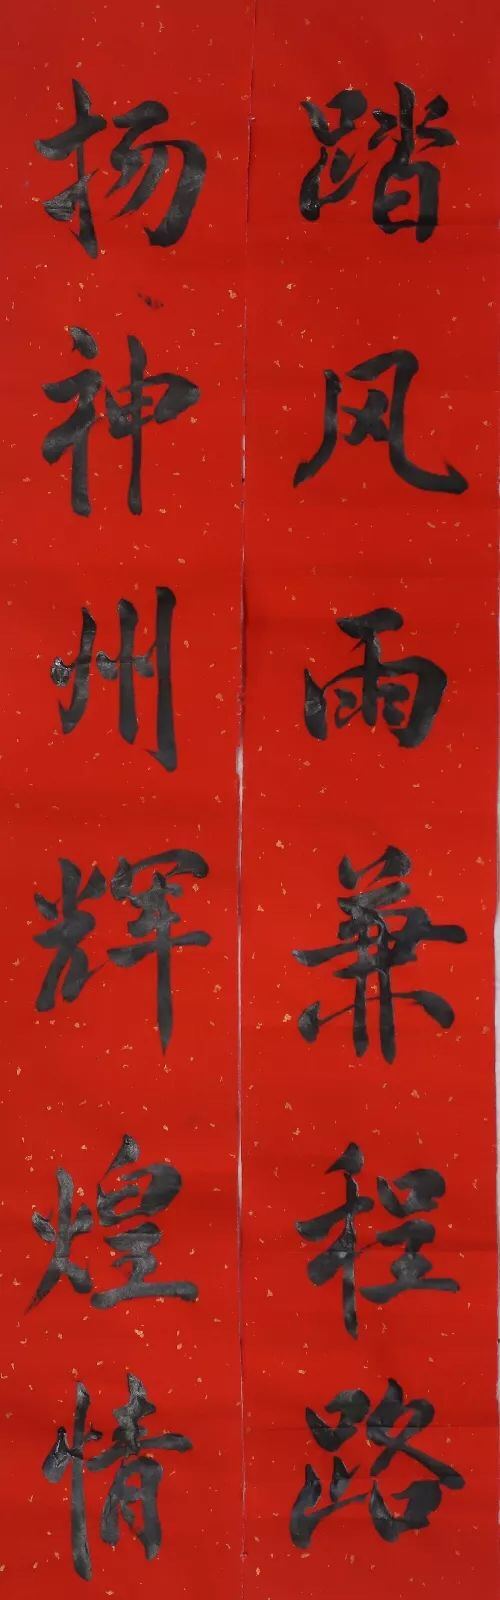 踏风雨兼程路
扬神州辉煌情